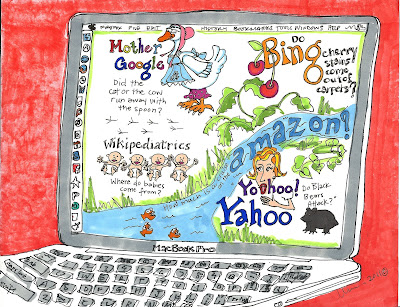 FILE
HISTORY BOOKMARKS TOOLS WINDOWS HELP
Mother
Google
Did the
cat or the cow
run away with
the spoon?
DO
Bing
cherry
stains
come
out of
carpets?
amazon!
Wikipediatrics
Where do babies
come from?
Yoohoo!
Yahoo
Do Black
Bears
Attack?"
MacBook Pro